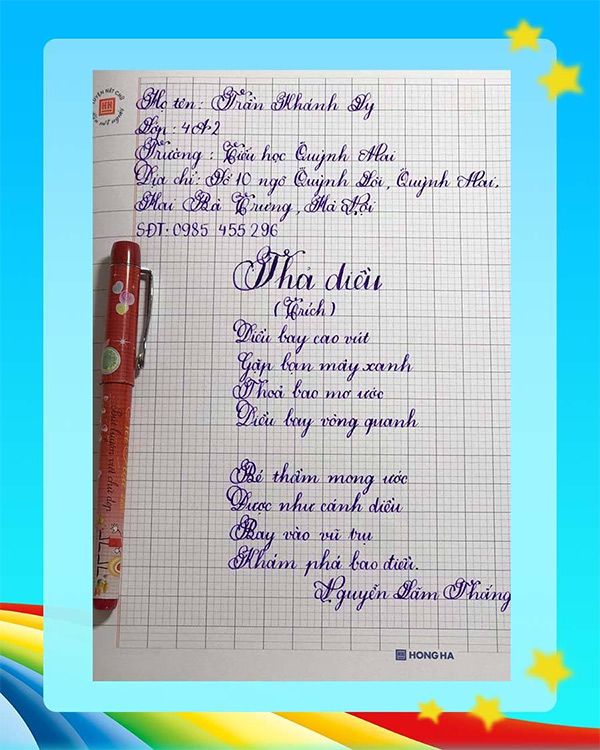 Họ tên: Trần Khánh Ly
Lớp: 4A2
Trường: Tiểu học Quỳnh Mai
Địa chỉ: Số 10 ngõ Quỳnh Lôi, Quỳnh Mai.
Hai Bà Trưng, Hà Nội
SĐT: 0985 455 296
Thả diều
(Trích)
Diều bay cao vút
Gặp bạn mây xanh
Thoả bao mơ ước
Diều bay vòng quanh
Bé thầm mong ước
Được như cánh diều
Bay vào vũ trụ
Khám phá bao điều.
Nguyễn Lãm Thắng
HONG HA